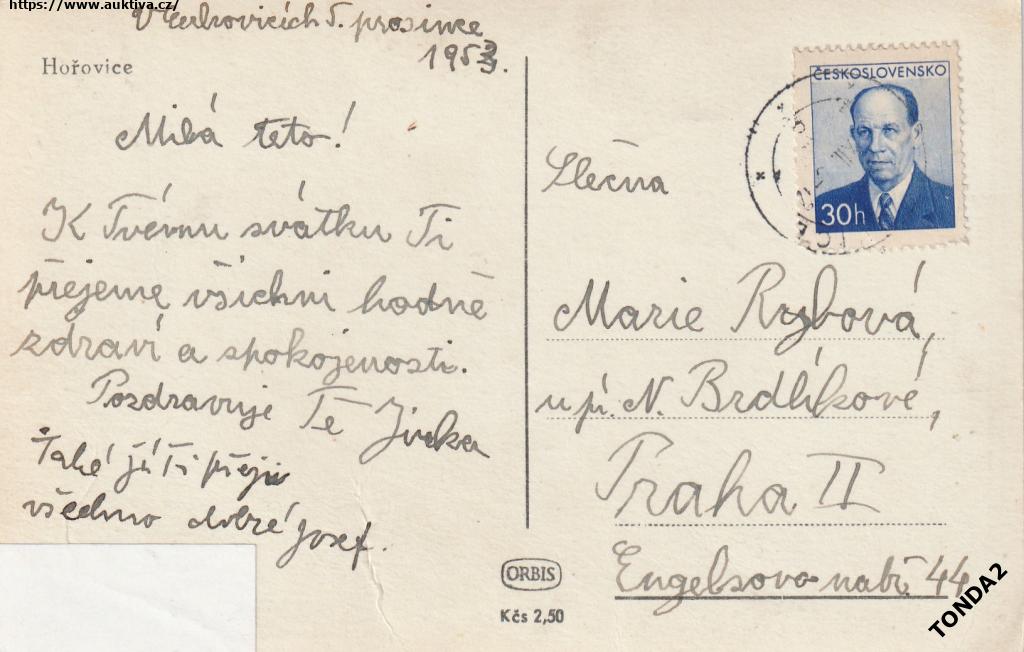 https://www.auktiva.cz/
5. prosince
1953.
Hořovice
Milá teto!
K Tvému svátku Ti
přejeme všichni hodně
zdraví a spokojenosti.
Pozdravuje Tě Jirka
Také já Ti přeji
všechno dobré Josef.
ČESKOSLOVENSKO
30h
Slečna
Marie Rybová,
u pí. N. Brdlíkové,
Praha II
Engelsovo nabř. 44
ORBIS
Kčs 2,50
TONDA2